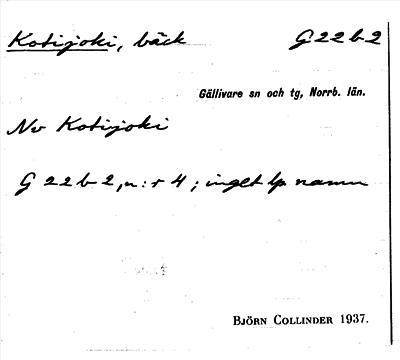 Kotijoki, bäck G 22 b 2
Gällivare sn och tg, Norrb. län.
Nv Kotijoki
G 22 b 2, n:r 4; inget lp namn
BJÖRN COLLINDER 1937.